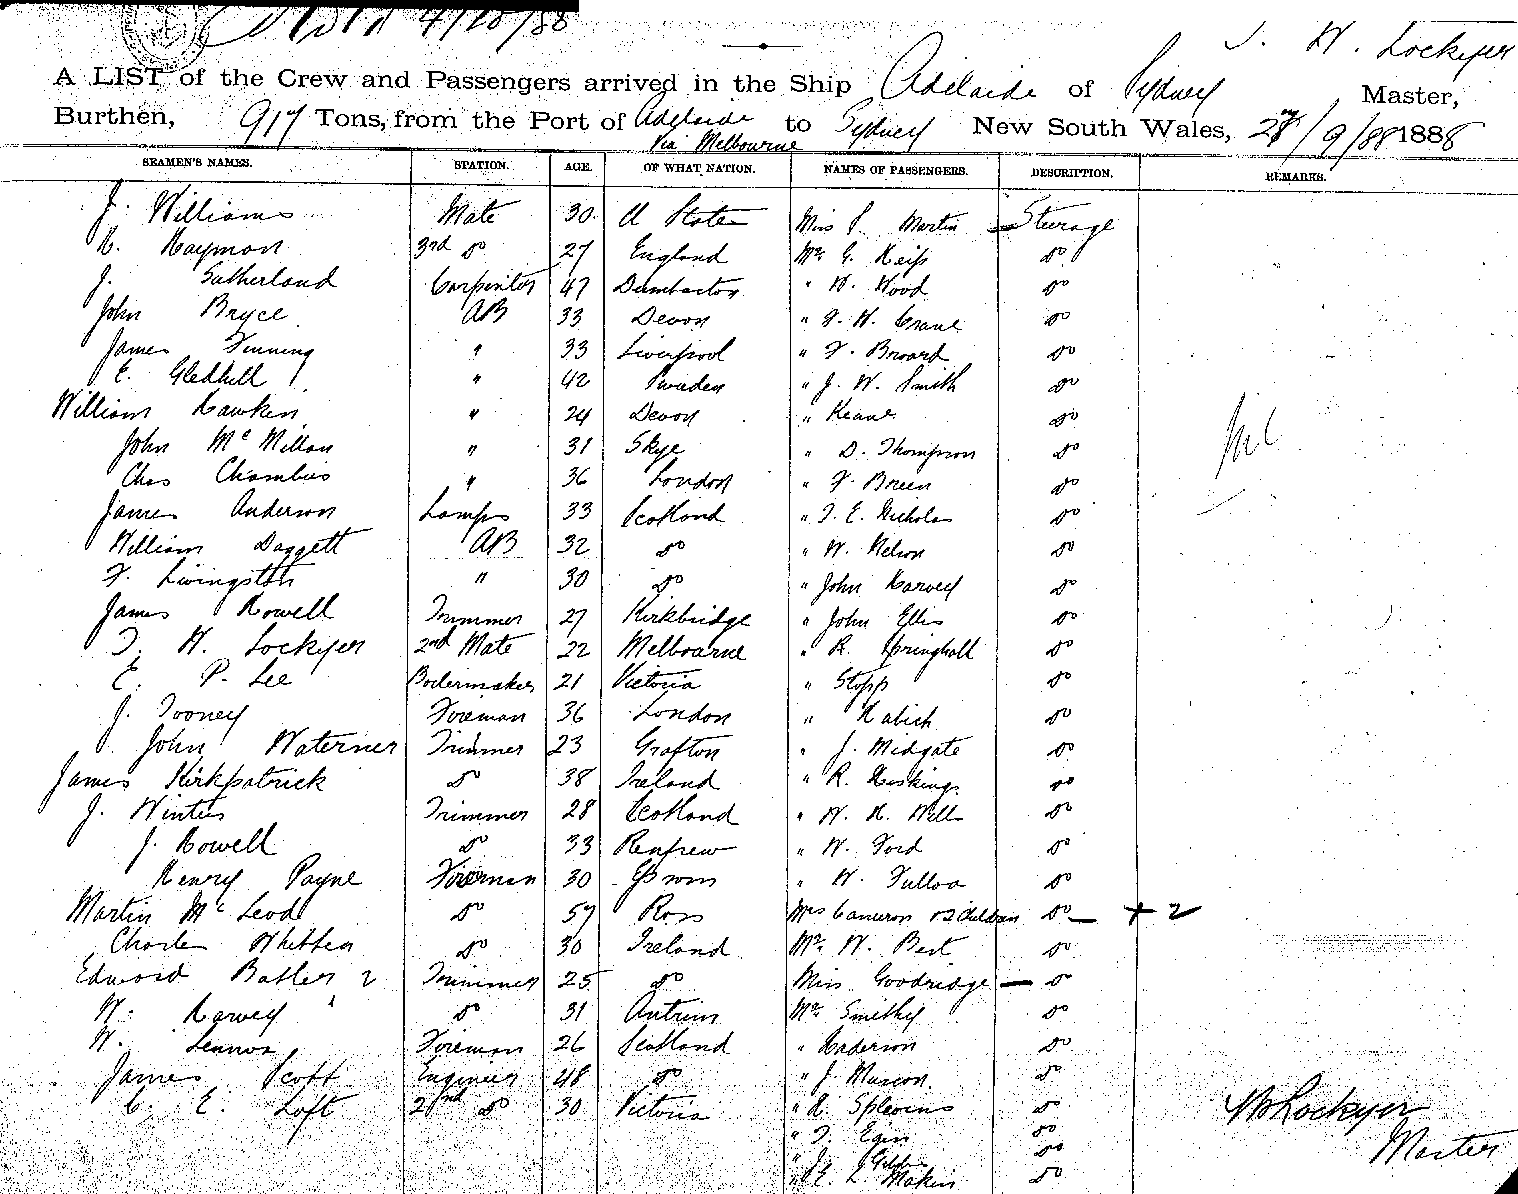 4/10/88
J. W. Lockyer
A LIST of the Crew and Passengers arrived in the Ship Adelaide of Sydney Master,
Burthen, 917 Tons, from the Port of Adelaide to Sydney New South Wales, 28/9/88 1888
Via Melbourne
SEAMEN'S NAMES. STATION. AGE. OF WHAT NATION. NAMES OF PASSENGERS. DESCRIPTION. REMARKS.
J. Williams Mate 30 U State Miss S. Martin Steerage
H. Haymon 3rd do 27 England Mr G. Keip do
J. Sutherland Carpenter 47 Dumbarton " W. Wood do
John Bryce AB 33 Devon " F. H. Crane do
James Finning " 33 Liverpool " F. Broard do
E. Gledhill " 42 Sweden " J. W. Smith do
William Hawken " 24 Devon " Keane do
John McMillan " 31 Skye " D. Thompson do
Chas Chambers " 36 London " F. Breen do
James Anderson Lamps 33 Scotland " T. E. Nicholas do
William Daggett AB 32 do " W. Nelson do
F. Livingston " 30 do " John Harvey do
James Howell Trimmer 27 Kirkbridge " John Ellis do
T. H. Lockyer 2nd Mate 22 Melbourne " R. Springhall do
E. P. Lee Boilermaker 21 Victoria " Stopp do
J. Tooney Foreman 36 London " Kabish do
John Waterner Trimmer 23 Grafton " J. Midgate do
James Kirkpatrick do 38 Ireland " R. Hosking do
J. Winters Trimmer 28 Scotland " W. H. Wills do
J. Howell do 33 Renfrew " W. Ford do
Henry Payne Foreman 30 " W. Tulloa do
Martin McLeod do 57 Ross Mrs Cameron & 2 Children do — + 2
Charles Whitten do 30 Ireland Mr W. Best do
Edward Butler 2 Trimmer 25 do Miss Goodridge — do
W. Harvey do 31 Antrim Mr Smithy do
W. Lennox Foreman 26 Scotland " Haderson do
James Scott Engineer 48 do " J. Muscon do
C. E. Loft 2nd do 30 Victoria " R. Splevins do
" T. Egin do
" J. Gibb do
" E. L. Makin do
W Lockyer
Master